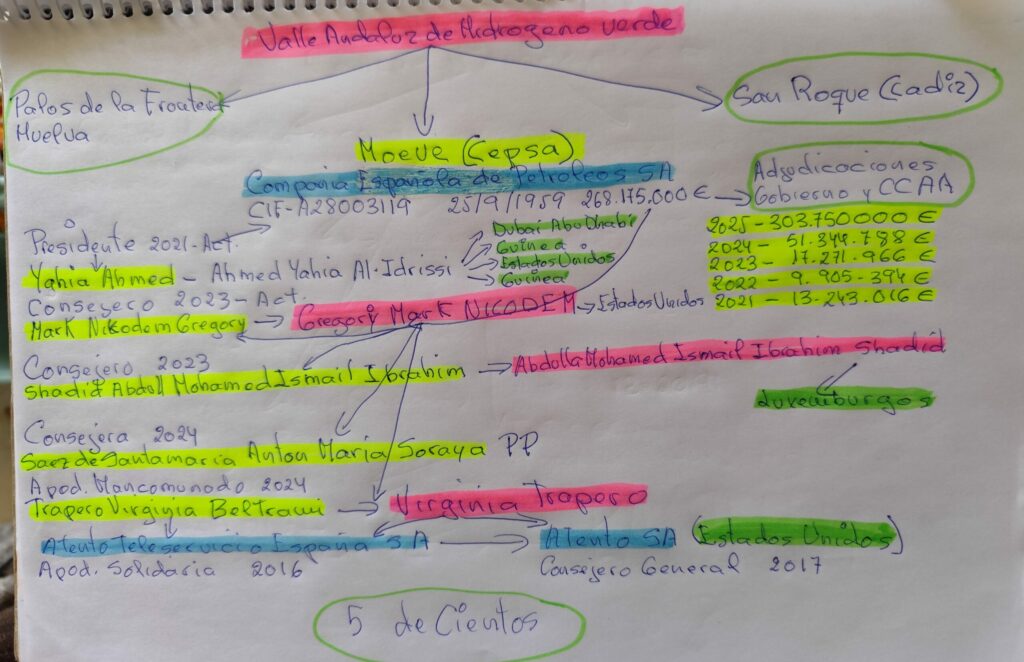 Valle Andaluz de Hidrogeno verde
Palos de la Frontera
Huelva
San Roque (Cadiz)
Moeve (Cepsa)
Compania Española de Petroleos SA
CIF-A28003119 25/9/1959 268.175.000 €
Adjudicaciones
Gobierno y CCAA
2025 - 303.750.000 €
2024 - 51.344.788 €
2023 - 17.271.966 €
2022 - 9.905.394 €
2021 - 13.243.016 €
Presidente 2021-Act.
Yahia Ahmed - Ahmed Yahia Al-Idrissi
Dubai Abu Dhabi
Guinea
Estados Unidos
Guinea
Consejero 2023-Act.
Mark Nikodom Gregory
Gregory Mark NICODEM
Estados Unidos
Consejero 2023
Shadid Abdoll Mohamed Ismail Ibrahim
Abdolla Mohamed Ismail Ibrahim Shadid
Luxemburgos
Consejera 2024
Saez de Santamaria Anton Maria Soraya PP
Apod. Mancomunado 2024
Trapero Virginia Beltrami
Virginia Trapero
Atento Teleservicio España SA
Atento SA (Estados Unidos)
Apod. Solidaria 2016
Consejero General 2017
5 de Cientos